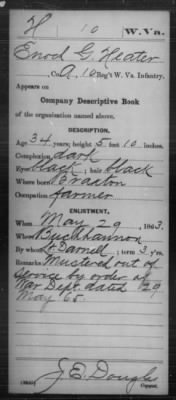 H 10 W.Va.
Enod G. Heater
Co. A, 10 Reg't W. Va. Infantry.
Appears on
Company Descriptive Book
of the organization named above.
DESCRIPTION.
Age 34 years; height 5 feet 10 inches.
Complexion dark
Eyes black; hair black
Where born Braxton
Occupation farmer
ENLISTMENT.
When May 29, 1863.
Where Buckhannon
By whom Darnell; term 3 y'rs.
Remarks Mustered out of
service by order of
War Dept. dated 29
May 65.
J. E. Dough
Copyist.